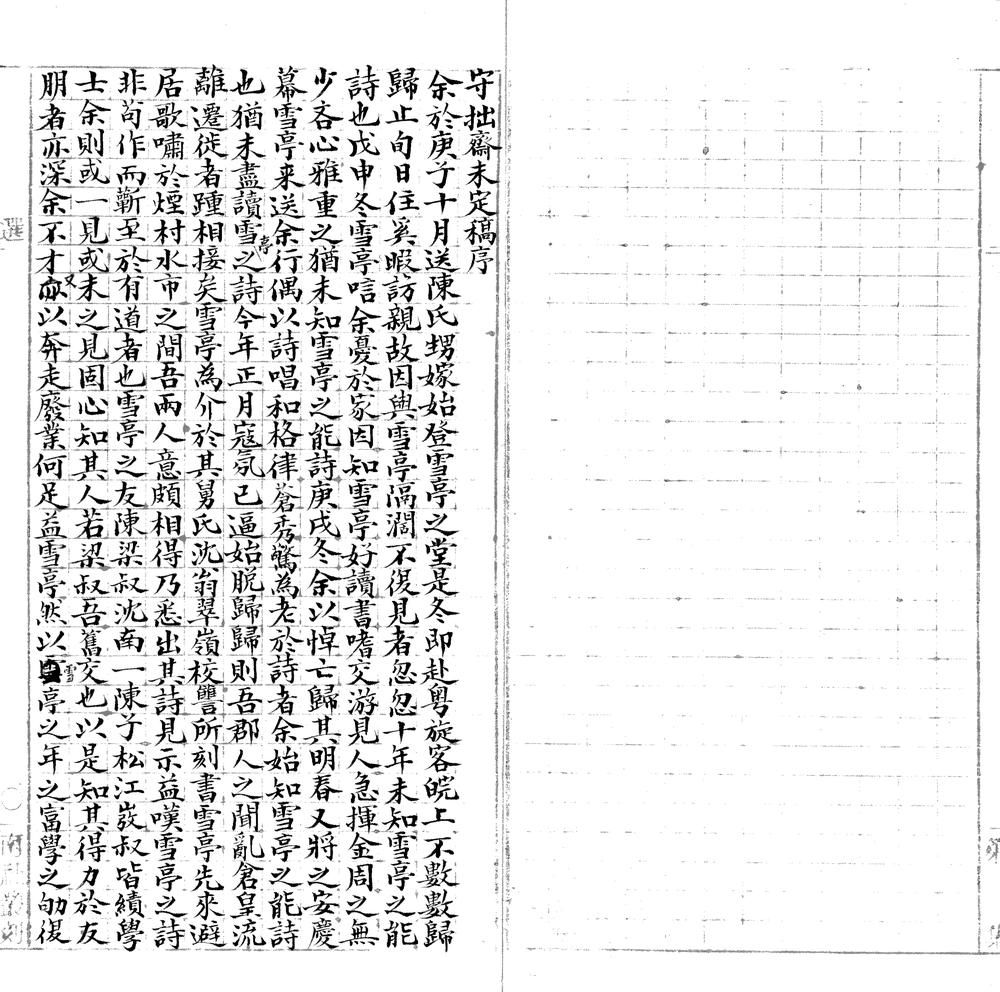 守拙齋未定稿序
余於庚子十月送陳氏甥嫁始登雪亭之堂是冬即赴粵旋客皖上不數數歸
歸止旬日住奚暇訪親故因與雪亭隔濶不復見者忽忽十年未知雪亭之能
詩也戊申冬雪亭唁余憂於家因知雪亭好讀書嗜交游見人急揮金周之無
少吝心雅重之猶未知雪亭之能詩庚戌冬余以悼亡歸其明春又將之安慶
幕雪亭來送余行偶以詩唱和格律蒼秀驚為老於詩者余始知雪亭之能詩
也猶未盡讀雪亭之詩今年正月寇氛已逼始脫歸歸則吾郡人之聞亂倉皇流
離遷徙者踵相接矣雪亭為介於其舅氏沈翁翠嶺校讐所刻書雪亭先來避
居歌嘯於煙村水市之間吾兩人意頗相得乃悉出其詩見示益嘆雪亭之詩
非苟作而蘄至於有道者也雪亭之友陳梁叔沈南一陳子松江弢叔皆績學
士余則或一見或未之見固心知其人若梁叔吾舊交也以是知其得力於友
朋者亦深余不才又以奔走廢業何足益雪亭然以雪亭之年之富學之劬復
選